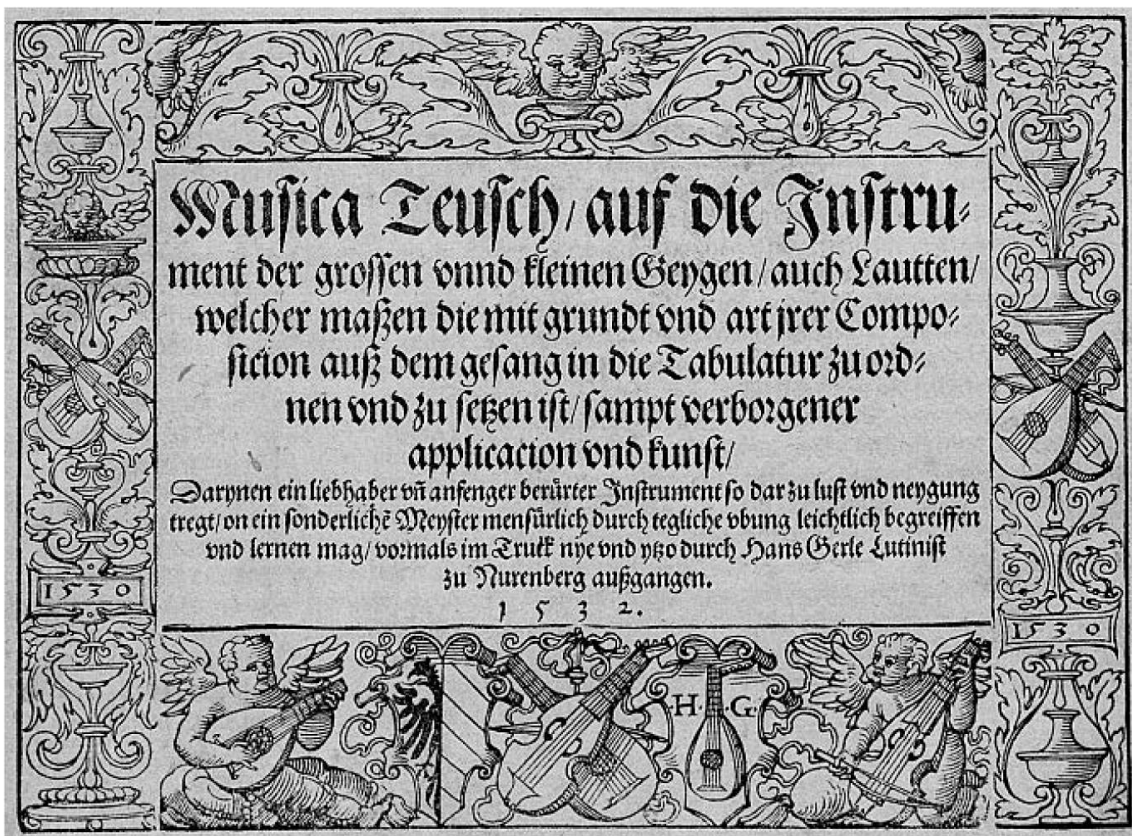 Musica Teusch/ auf die Instru⸗
ment der grossen vnnd kleinen Geygen/ auch Lautten/
welcher maßen die mit grundt vnd art jrer Compo⸗
sicion auß dem gesang in die Tabulatur zu ord⸗
nen vnd zu setzen ist/ sampt verborgener
applicacion vnd kunst/
Darynen ein liebhaber vñ anfenger berürter Instrument so dar zu lust vnd neygung
tregt/ on ein sonderlichẽ Meyster mensürlich durch tegliche vbung leichtlich begreiffen
vnd lernen mag/ vormals im Truck nye vnd ytzo durch Hans Gerle Lutinist
zu Nurenberg außgangen.
1532.
1530
1530
H G